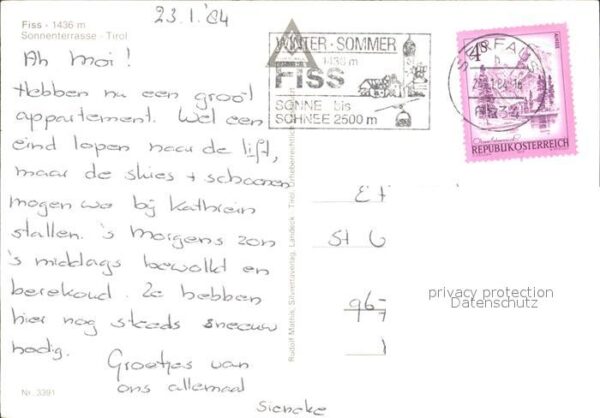 23.1.'84
Fiss - 1436 m
Sonnenterrasse - Tirol
Ah Moi!
Hebben nu een groot
appartement. Wel een
eind lopen naar de lift,
maar de skies + schoenen
mogen we bij Kathrein
stallen. 's Morgens zon
's middags bewolkt en
berekoud. Ze hebben
hier nog steeds sneeuw
nodig.
Groetjes van
ons allemaal
Sieneke
Nr. 3391
WINTER · SOMMER
1436 m
FISS
SONNE bis
SCHNEE 2500 m
SERFAUS
4S
REPUBLIK ÖSTERREICH
Rudolf Mathis, Silvrettaverlag, Landeck - Tirol, Urheberrechtlich
Et
St G
96-
privacy protection
Datenschutz